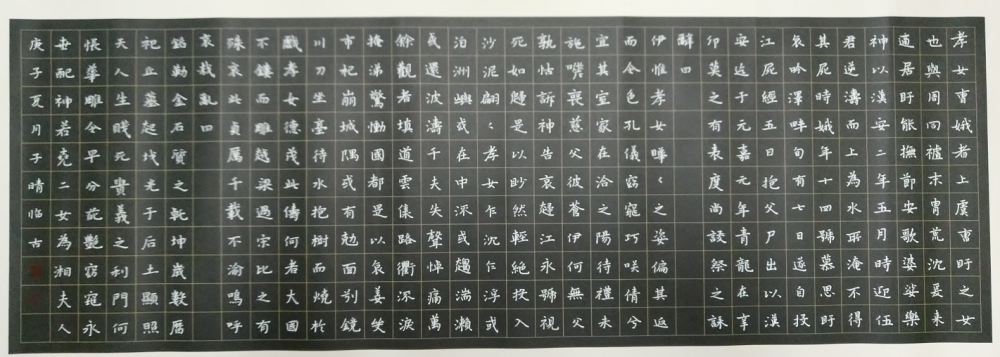 孝女曹娥者上虞曹盱之女
也與周同禮末胄荒沈爰来
適居盱能撫節安歌婆娑樂
神以漢安二年五月時迎伍
君逆濤而上為水所淹不得
其屍時娥年十四號慕思盱
哀吟澤畔旬有七日遂自投
江屍經五日抱父尸出以漢
安迄于元嘉元年青龍在辛
卯莫之有表度尚設祭之誄
辭曰
伊惟孝女曄〻之姿偏其返
而令色孔儀窈窕巧咲倩兮
宜其室家在洽之陽待禮未
施嗟喪慈父彼蒼伊何無父
孰怙訴神告哀赴江永號視
死如歸是以眇然輕絕投入
沙泥翩〻孝女乍沉乍浮或
泊洲嶼或在中流或趨湍瀨
或還波濤千夫失聲悼痛萬
餘觀者填道雲集路衢泣淚
掩涕驚慟國都是以哀姜哭
市杞崩城隅或有勉面引鏡
川刀坐臺待水抱樹而燒於
戲孝女德茂此儔何者大國
不鏤而雕越梁過宋比之有
殊哀此貞厲千載不渝鳴呼
哀哉亂曰
銘勒金石質之乾坤歲數曆
祀丘墓起墳光于后土顯照
天人生賤死貴義之利門何
悵華雕令早分葩艷窈窕永
世配神若堯二女為湘夫人
庚子夏月子晴临古